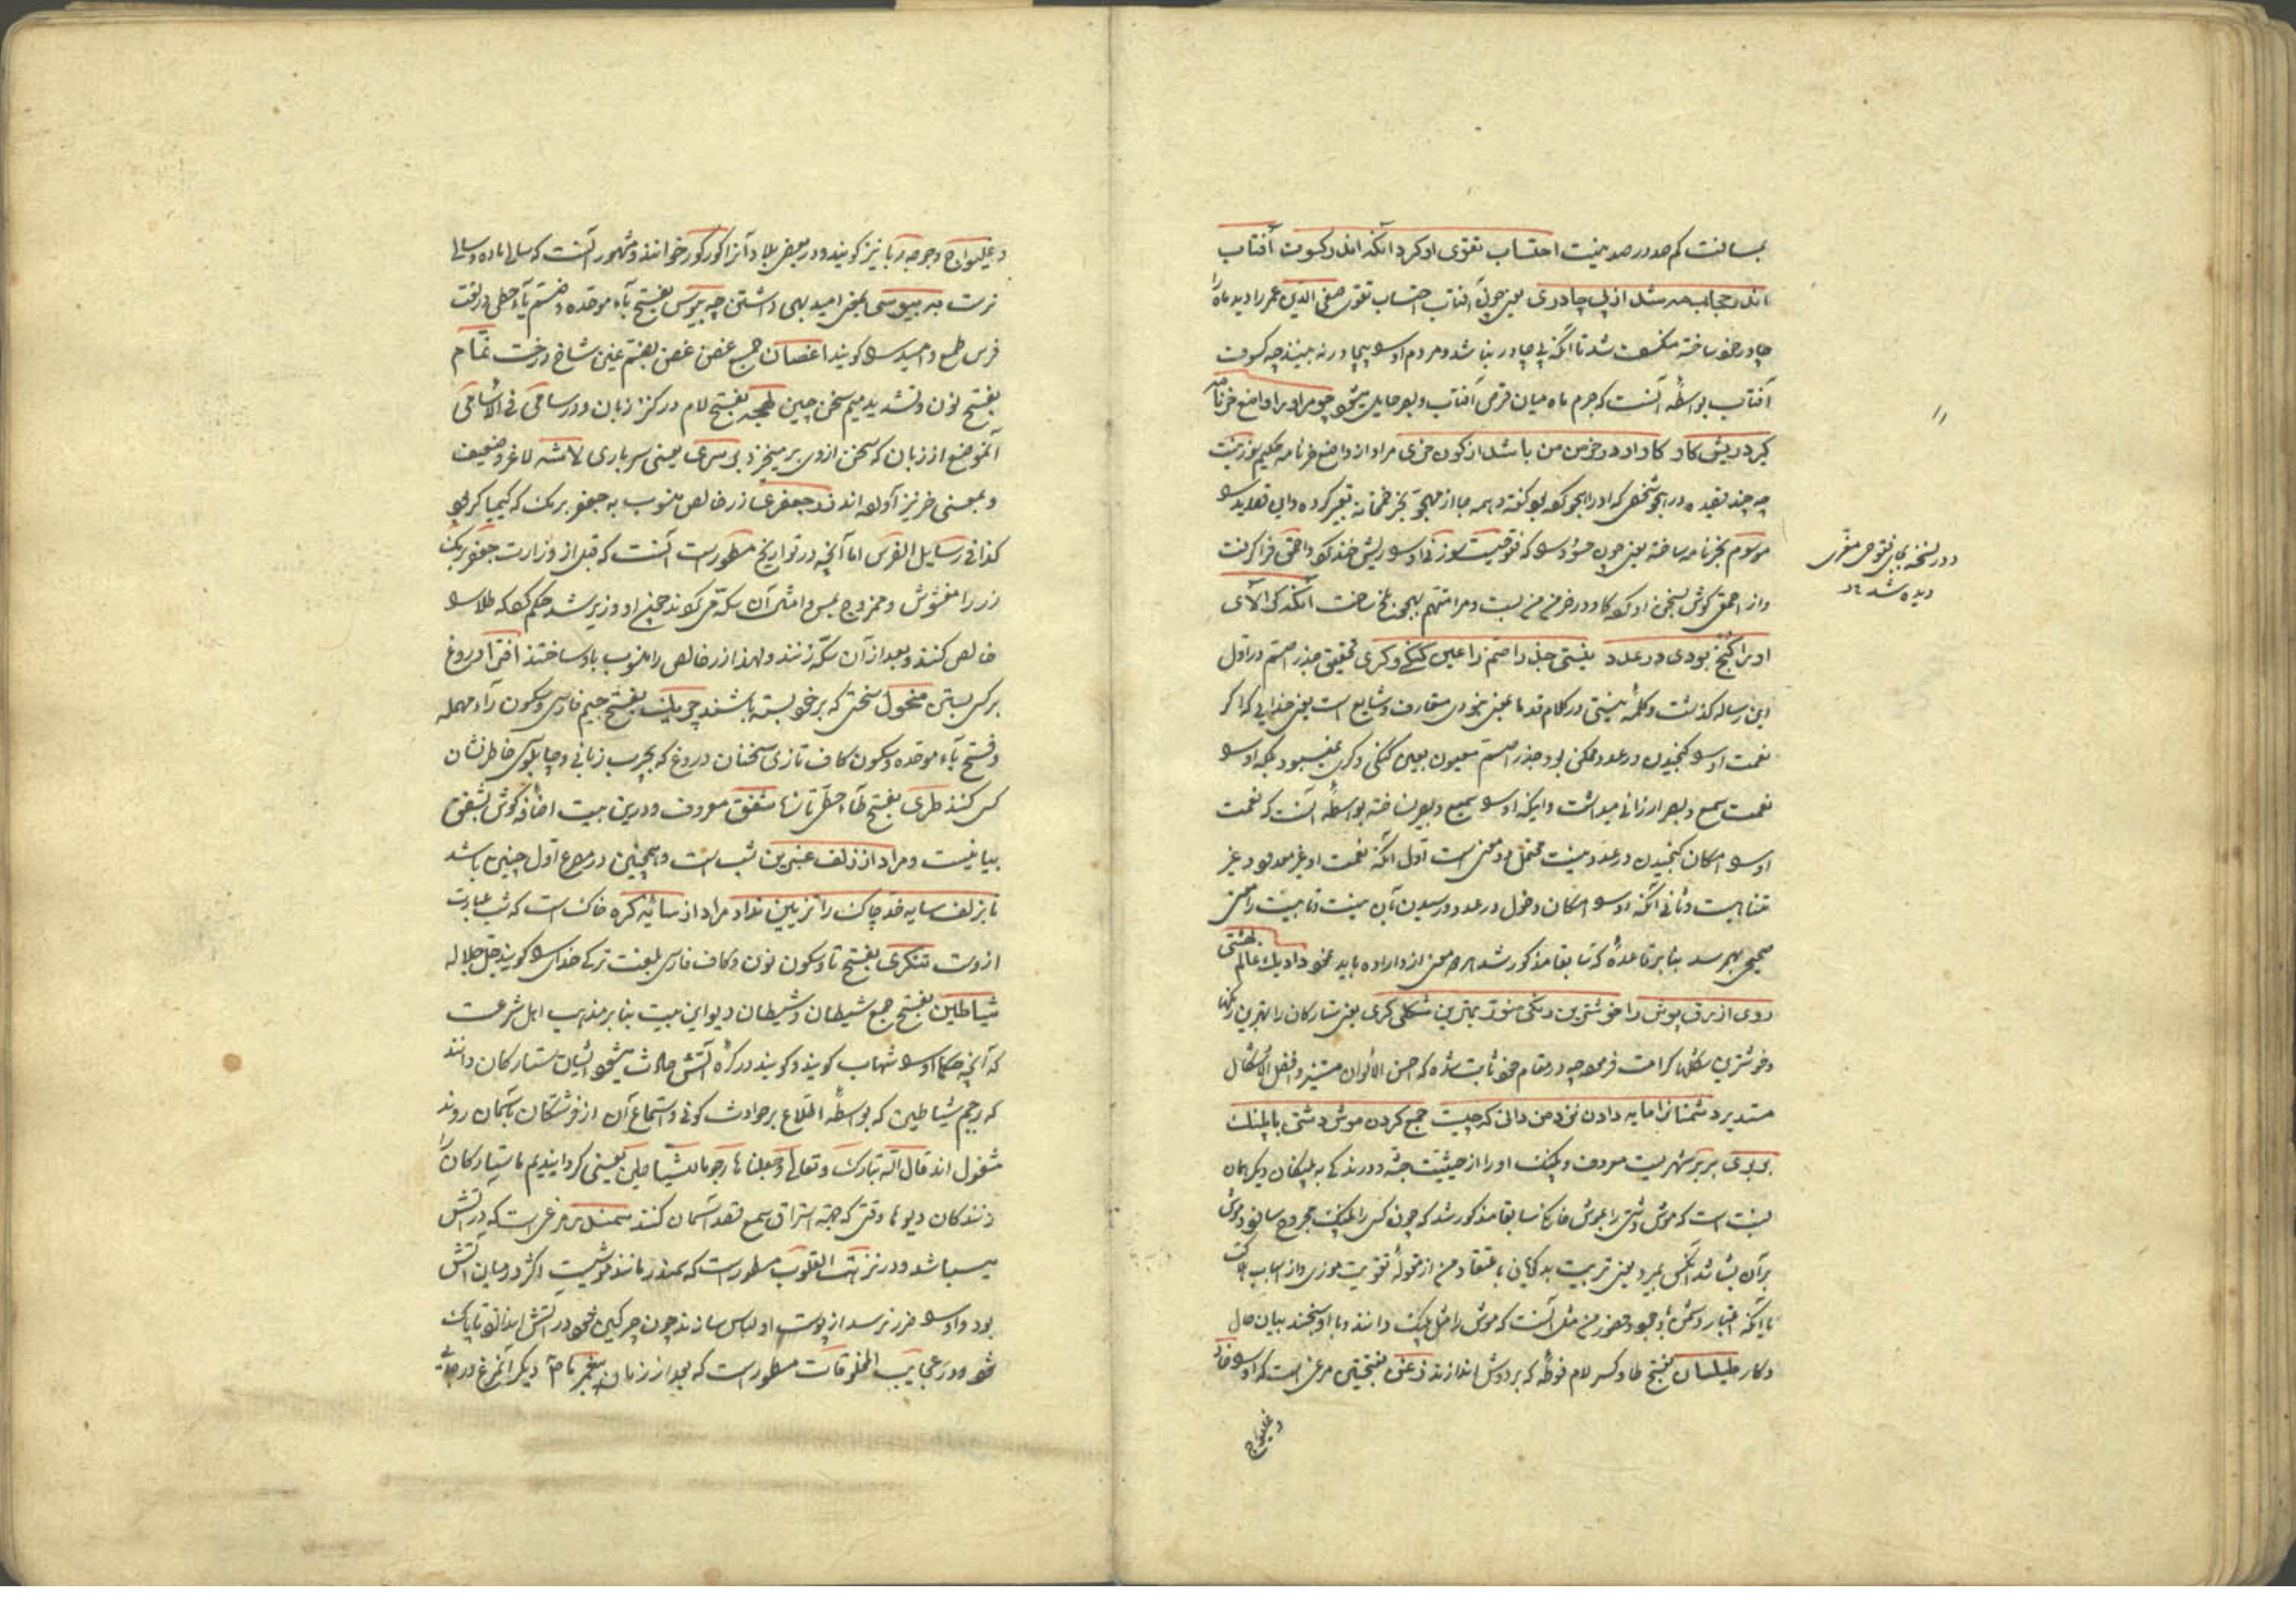 بمسافت کم صد در صد نیست احتساب تقوی او کرد آنکه اندر کسوت آفتاب
اندر حجاب مه شد از بی چادری یعنی چون آفتاب احتساب تقوی صفی الدین عمر را دید ماه را
چادر خود ساخته منکسف شد تا آنکه بی چادر نباشد و مردم او را بیچادر نه بینند چه کسوت
آفتاب بواسطه آنست که جرم ماه میان قرص آفتاب و بصر حایل میشود چو مراد مرا واضع خرنامه
گیرد ریش گاو گاو او در خرمن من باشد از کون خری مراد از واضع خرنامه حکیم سوزنیست
چه چند قصیده در هجو شخصی که او را هجو کرده بود گفته و همه جا از مهجو بخر خمخانه تعبیر کرده و این قصاید را
موسوم بخرنامه ساخته یعنی چون حسود را که فتوحیست سوزنی او را ریش خند کرد و احمق فرا گرفت
و از احمق گوش بسخن او کرد گاو در خرمن من بست و مرا متهم بهجو بلخ ساخت آنکه گر آلای
او را گنج بودی در عدد نیستی جذر اصم را عین گنگی و کری تحقیق جذر اصم در اول
این رساله گذشت و کلمه نیستی در کلام قدما بمعنی نبودی متعارف و شایع است یعنی خدایی که اگر
نعمت او را گنجیدن در عدد ممکن بود جذر اصم معیوب بعیب گنگی و کری نمیبود بلکه او را
نعمت سمع و بصر ارزانی میداشت و اینکه او را سمیع و بصیر نساخته بواسطه آنست که نعمت
او را امکان گنجیدن در عدد نیست محتمل دو معنی است اول آنکه نعمت او غیر معدود و غیر
متناهیست و ثانی آنکه او را امکان دخول در عدد و رسیدن بآن نیست و تا بیت را معنی
صحیح بهم رسد بنا بر قاعده که سابقا مذکور شد هر دو معنی از او اراده باید نمود داد یک عالم بهشتی
روی ازرق پوش را خوشترین رنگی منور بهترین شکلی کری یعنی ستارگان را بهترین رنگها
و خوشترین شکلها کرامت فرموده چه در مقام خود ثابت شده که احسن الالوان مستنیر و افضل الاشکال
مستدیر دشمنانرا مایه دادن نزد من دانی که چیست جمع کردن موش دشتی با پلنگ
بربری بربر شهریست معروف و پلنگ او را از حیثیت جثه و درندگی به پلنگان دیگر همان
نسبت است که موش دشتی را بموش خانگی سابقا مذکور شد که چون کسی را پلنگ مجروح سازد و موش
بر آن بشاشد آنکس بمیرد یعنی تربیت بدگویان باعتقاد من از مقوله تقویت موذی و از اسباب هلاکت
با آنکه اعتبار دشمن با وجود حضور من مثل آنست که موش را مثل پلنگ دانند و با او سنجند بیان حال
و کار طیلسان بفتح طا و کسر لام فوطه که بر دوش اندازند زغن بفتحتین مرغی است که او را خاد
و غلیواج
در نسخه بجای فتوحی مغزی
دیده شد
و غلیواج و جوجه ربا نیز گویند و در بعض بلاد آنرا کورکور خوانند و مشهور آنست که سالی ماده و سالی
نرست بیوسی بمعنی امید بهی داشتن چه بیوس بفتح باء موحده و ضم یاء حطی در لغت
فرس طمع و امید را گویند اغصان جمع غصن غصن بضم غین شاخ درخت نمام
بفتح نون و تشدید میم سخن چین لهجه بفتح لام در کنز زبان و در سامی فی الاسامی
آنموضع از زبان که سخن از وی برمیخیزد بی سری یعنی سرباری لاشه لاغر و ضعیف
و بمعنی خر نیز آورده اند زر جعفری زر خالص منسوب به جعفر برمک که کیمیاگر بود
کذا فی رسایل الفرس اما آنچه در تواریخ مسطورست آنست که قبل از وزارت جعفر برمک
زر را مغشوش و ممزوج بمس و امثال آن سکه می کردند چون او وزیر شد حکم کرد که طلا را
خالص کنند و بعد از آن سکه زنند و لهذا زر خالص را منسوب باو ساختند افترا دروغ
بر کسی بستن منحول سخنی که بر خود بسته باشند چربک بفتح جیم فارسی و سکون راء مهمله
و فتح باء موحده و سکون کاف تازی سخنان دروغ که بچرب زبانی و چاپلوسی خاطرنشان
کس کنند طری بفتح طاء حطی تازه شفق معروف و درین بیت اضافه گوش بشفق
بیانیست و مراد از زلف عنبرین شب است و همچنین در مصرع اول چنین باشد
تا بزلف سایه خد چاک را تزیین نداد مراد از سایه کره خاکست که شب عبارت
ازوست تنکری بفتح تا و سکون نون و کاف فارسی بلغت ترکی خدای را گویند جل جلاله
شیاطین بفتح جمع شیطان و شیطان دیو این بیت بنا بر مذهب اهل شرعست
که آنچه حکما او را شهاب گویند و گویند در کره آتش حادث میشود ایشان ستارگان دانند
که رجم شیاطین که بواسطه اطلاع بر حوادث کونی و استماع آن از فرشتگان بآسمان روند
مشغول اند قال الله تبارک و تعالی و جعلناها رجوما للشیاطین یعنی گردانیدیم ما ستارگان را
زنندگان دیوها وقتی که جهة استراق سمع قصد آسمان کنند سمندر مرغی است که در آتش
میباشد و در نزهت القلوب مسطورست که سمندر مانند موشیست اکثر در میان آتش
بود و او را ضرر نرسد از پوست او لباس سازند چون چرکین شود در آتش اندازند تا پاک
شود و در عجایب المخلوقات مسطورست که بعد از زمان پیغمبر ما ص دیگر آنمرغ در